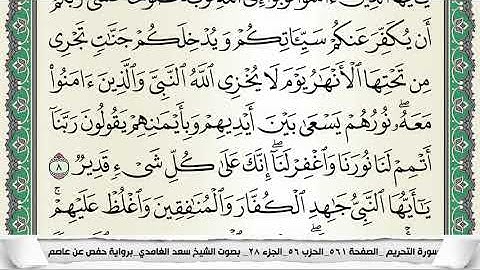 يَـٰٓأَيُّهَا ٱلَّذِينَ ءَامَنُوا۟ تُوبُوٓا۟ إِلَى ٱللَّهِ تَوْبَةً نَّصُوحًا عَسَىٰ رَبُّكُمْ
أَن يُكَفِّرَ عَنكُمْ سَيِّـَٔاتِكُمْ وَيُدْخِلَكُمْ جَنَّـٰتٍ تَجْرِى
مِن تَحْتِهَا ٱلْأَنْهَـٰرُ يَوْمَ لَا يُخْزِى ٱللَّهُ ٱلنَّبِىَّ وَٱلَّذِينَ ءَامَنُوا۟
مَعَهُۥ ۖ نُورُهُمْ يَسْعَىٰ بَيْنَ أَيْدِيهِمْ وَبِأَيْمَـٰنِهِمْ يَقُولُونَ رَبَّنَآ
أَتْمِمْ لَنَا نُورَنَا وَٱغْفِرْ لَنَآ ۖ إِنَّكَ عَلَىٰ كُلِّ شَىْءٍ قَدِيرٌ ٨
يَـٰٓأَيُّهَا ٱلنَّبِىُّ جَـٰهِدِ ٱلْكُفَّارَ وَٱلْمُنَـٰفِقِينَ وَٱغْلُظْ عَلَيْهِمْ ۚ
سورة التحريم _الصفحة ٥٦١_ الحزب ٥٦_الجزء ٢٨_ بصوت الشيخ سعد الغامدي_برواية حفص عن عاصم